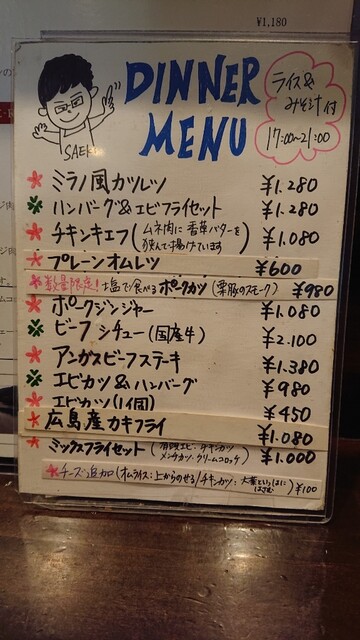 ¥1,180
DINNER
MENU
ライス&
みそ汁付
17:00〜21:00
SAEKI
ミラノ風カツレツ ¥1.280
ハンバーグ&エビフライセット ¥1.280
チキンキエフ(ムネ肉に香草バターを挟んで揚げています) ¥1.080
プレーンオムレツ ¥600
数量限定!塩で食べるポークカツ(栗豚のスモーク) ¥980
ポークジンジャー ¥1.080
ビーフシチュー(国産牛) ¥2.100
アンガスビーフステーキ ¥1.380
エビカツ&ハンバーグ ¥980
エビカツ(1個) ¥450
広島産カキフライ ¥1.080
ミックスフライセット(有頭エビ・チキンカツ メンチカツ・クリームコロッケ) ¥1.000
チーズ追加(オムライス:上からのせる/チキンカツ:大葉といっしょにはさむ) ¥100